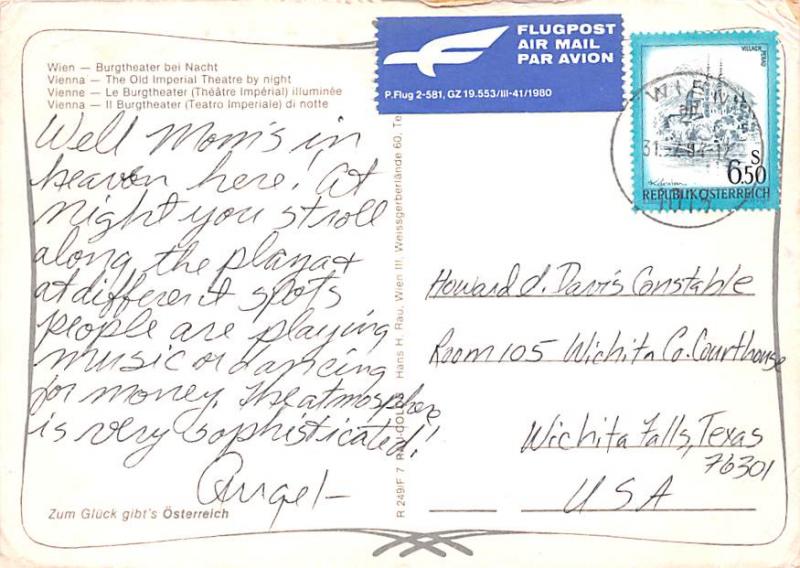 Wien — Burgtheater bei Nacht
Vienna — The Old Imperial Theatre by night
Vienne — Le Burgtheater (Théâtre Impérial) illuminée
Vienna — Il Burgtheater (Teatro Imperiale) di notte
FLUGPOST
AIR MAIL
PAR AVION
P.Flug 2-581, GZ 19.553/III-41/1980
WIEN
S
6.50
REPUBLIK ÖSTERREICH
Well Mom's in
heaven here! At
night you stroll
along the plaza &
at different spots
people are playing
music or dancing
for money. The atmosphere
is very sophisticated!
Angel—
Zum Glück gibt's Österreich
Hans H. Rau, Wien III, Weissgerberlände 60, Te
R 249/F 7
Howard J. Davis Constable
Room 105 Wichita Co. Courthouse
Wichita Falls, Texas
76301
USA